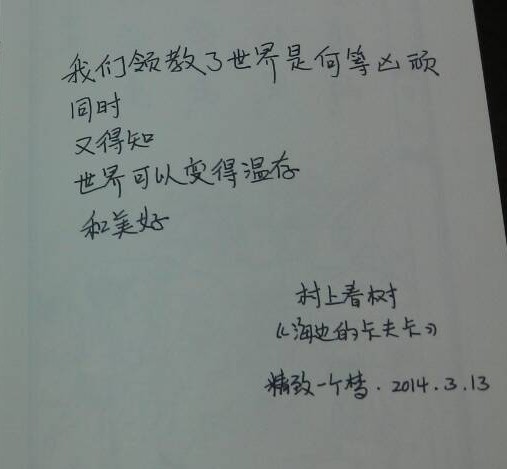 我们领教了世界是何等凶顽
同时
又得知
世界可以变得温存
和美好
村上春树
《海边的卡夫卡》
精致一个梦. 2014.3.13